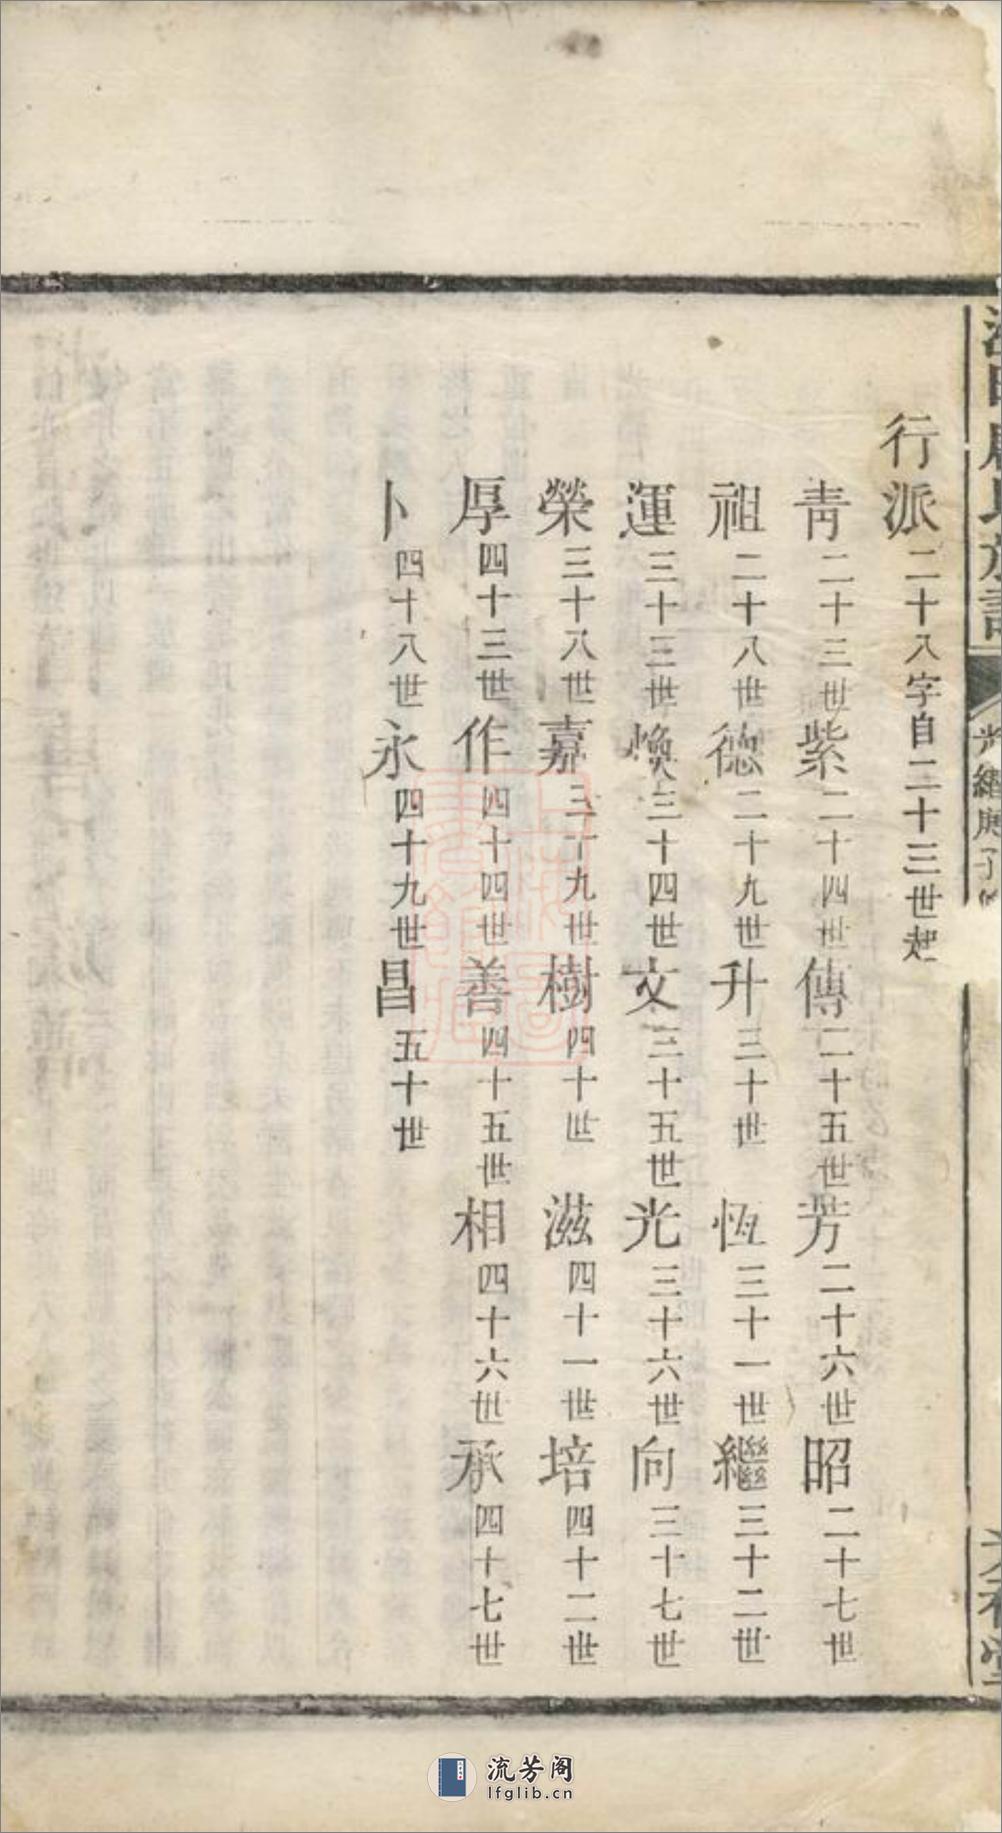 行派二十八字自二十三世起
青二十三世紫二十四世傳二十五世芳二十六世昭二十七世
祖二十八世德二十九世升三十世恆三十一世繼三十二世
運三十三世煥三十四世文三十五世光三十六世向三十七世
榮三十八世嘉三十九世樹四十世滋四十一世培四十二世
厚四十三世作四十四世善四十五世相四十六世承四十七世
卜四十八世永四十九世昌五十世
流芳阁
lfglib.cn